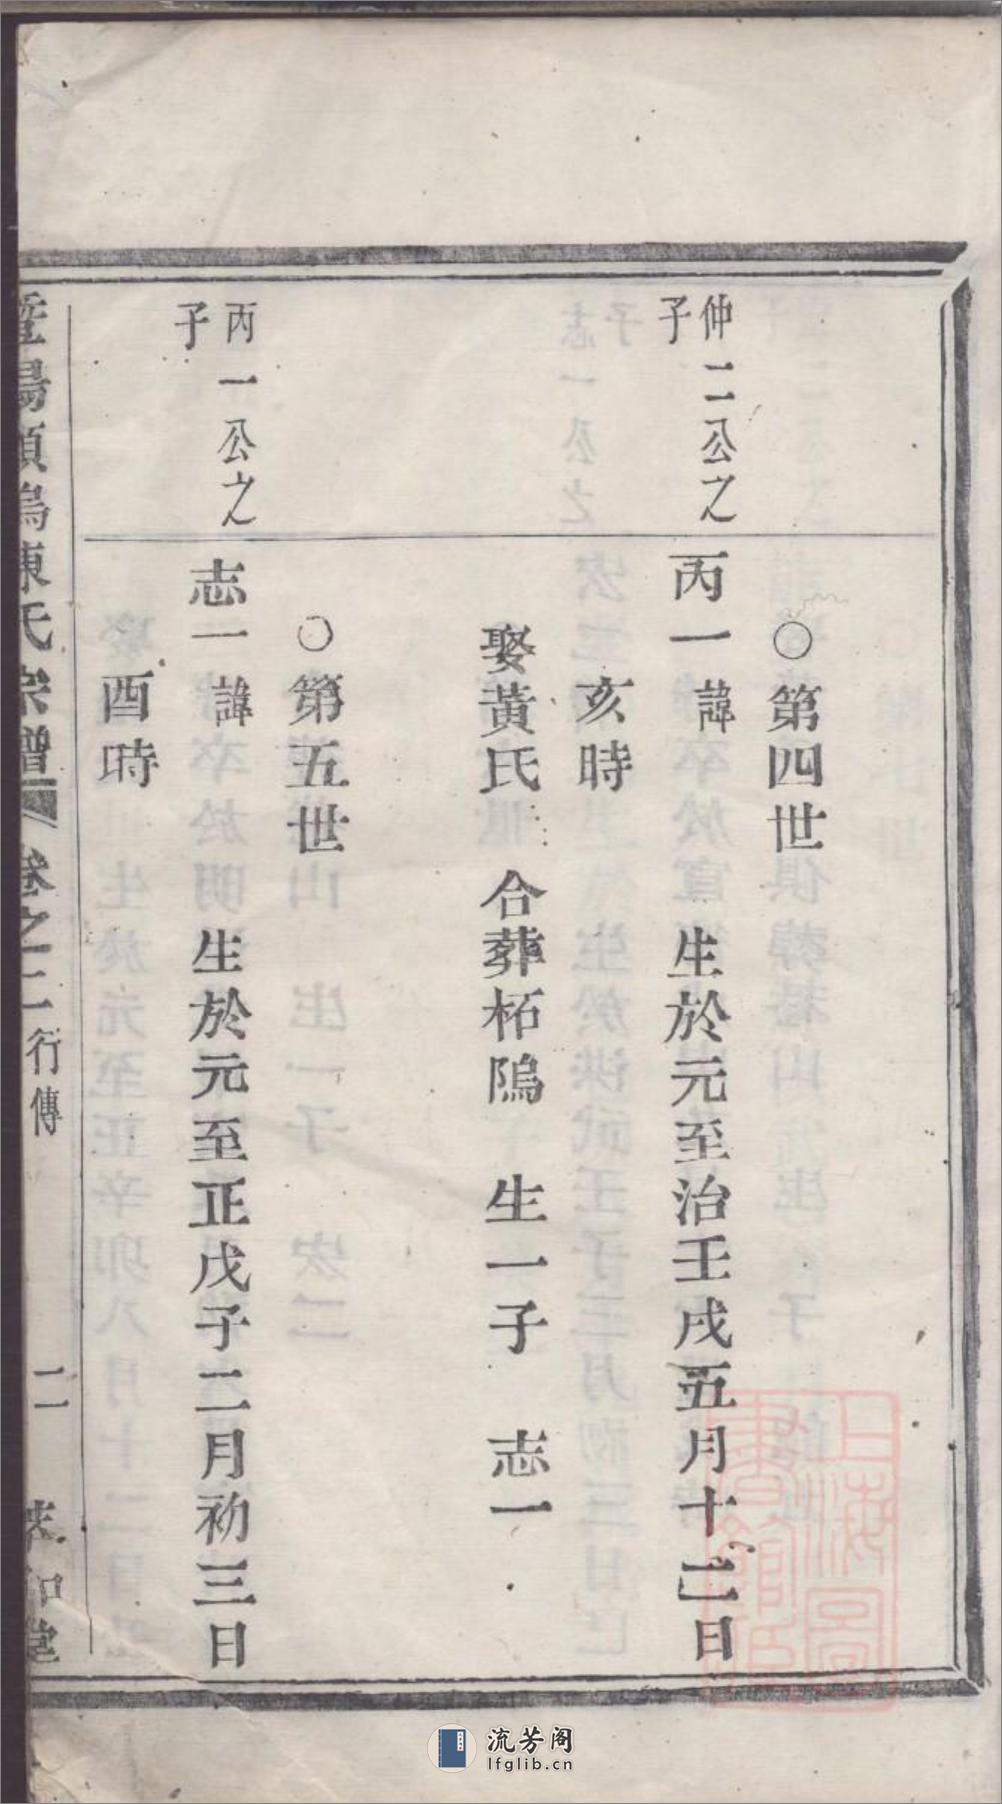 ○第四世
仲二公之
子
丙一諱 生於元至治壬戌五月十二日
亥時
娶黃氏 合葬柘隖 生一子 志一
○第五世
丙一公之
子
志一諱 生於元至正戊子二月初三日
酉時
暨陽 塢陳氏宗譜 卷之二 行傳 二 和堂
上海圖書館藏
流芳阁
lfglib.cn